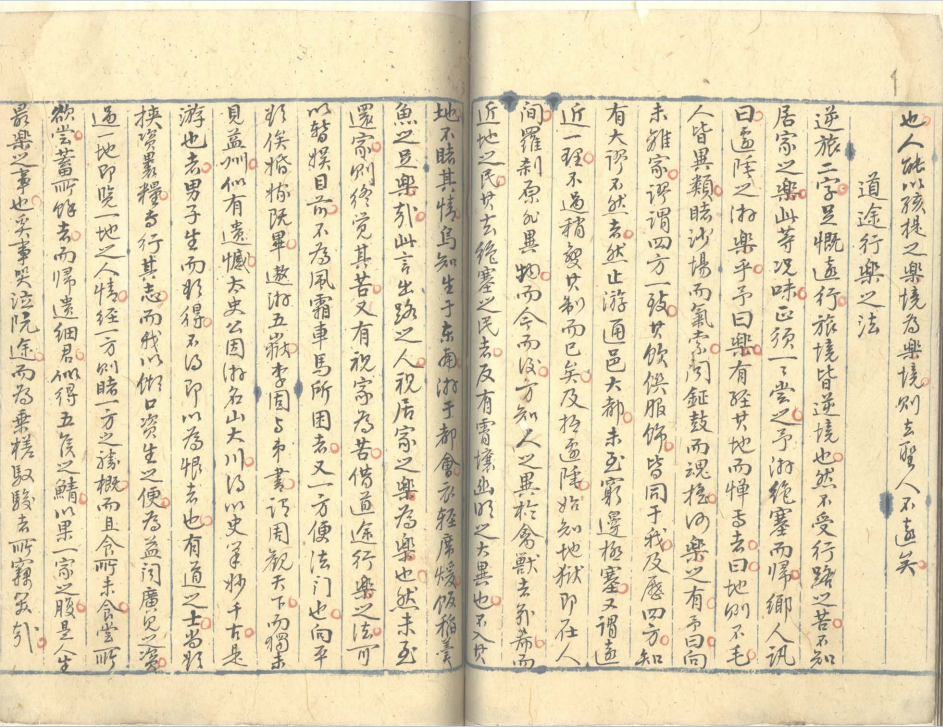 也人能以孩提之樂境為樂境則去聖人不遠矣
道途行樂之法
逆旅二字足概遠行旅境皆逆境也然不受行路之苦不知
居家之樂此等况味正須一一嘗之予游絶塞而歸鄉人訊
曰邊陲之游樂乎予曰樂有經其地而憚焉者曰地則不毛
人皆異類睹沙場而氣索聞鉦鼓而魂搖何樂之有予曰向
未離家謬謂四方一致其飲饌服飾皆同于我及歷四方知
有大謬不然者然止游通邑大都未至窮邊極塞又謂遠
近一理不過稍變其制而已矣及抵邊陲始知地獄即在人
間羅刹原非異物而今而後方知人之異於禽獸者幾希而
近地之民其去絶塞之民者反有霄壤幽明之大異也不入其
地不睹其情烏知生于东南游于都會衣輕席煖飯稻羹
魚之足樂哉此言出路之人視居家之樂為樂也然未至
還家則終覺其苦又有視家為苦借道途行樂之法可
以暫娱目前不為風霜車馬所困者又一方便法門也向平
欲俟婚嫁既畢遨游五嶽李固与弟書謂周觀天下而獨未
見益州似有遺憾太史公因游名山大川得以史筆妙千古是
游也者男子生而欲得不得即以為恨者也有道之士尚欲
挟資裹糧专行其志而我以餬口資生之便為益聞廣見之資
過一地即覧一地之人情經一方則睹一方之勝概而且食所未食嘗所
欲嘗蓄所餘者而歸遺細君似得五侯之鯖以果一家之腹是人生
最樂之事也奚事哭泣阮途而為乗槎馭駿者所竊笑哉